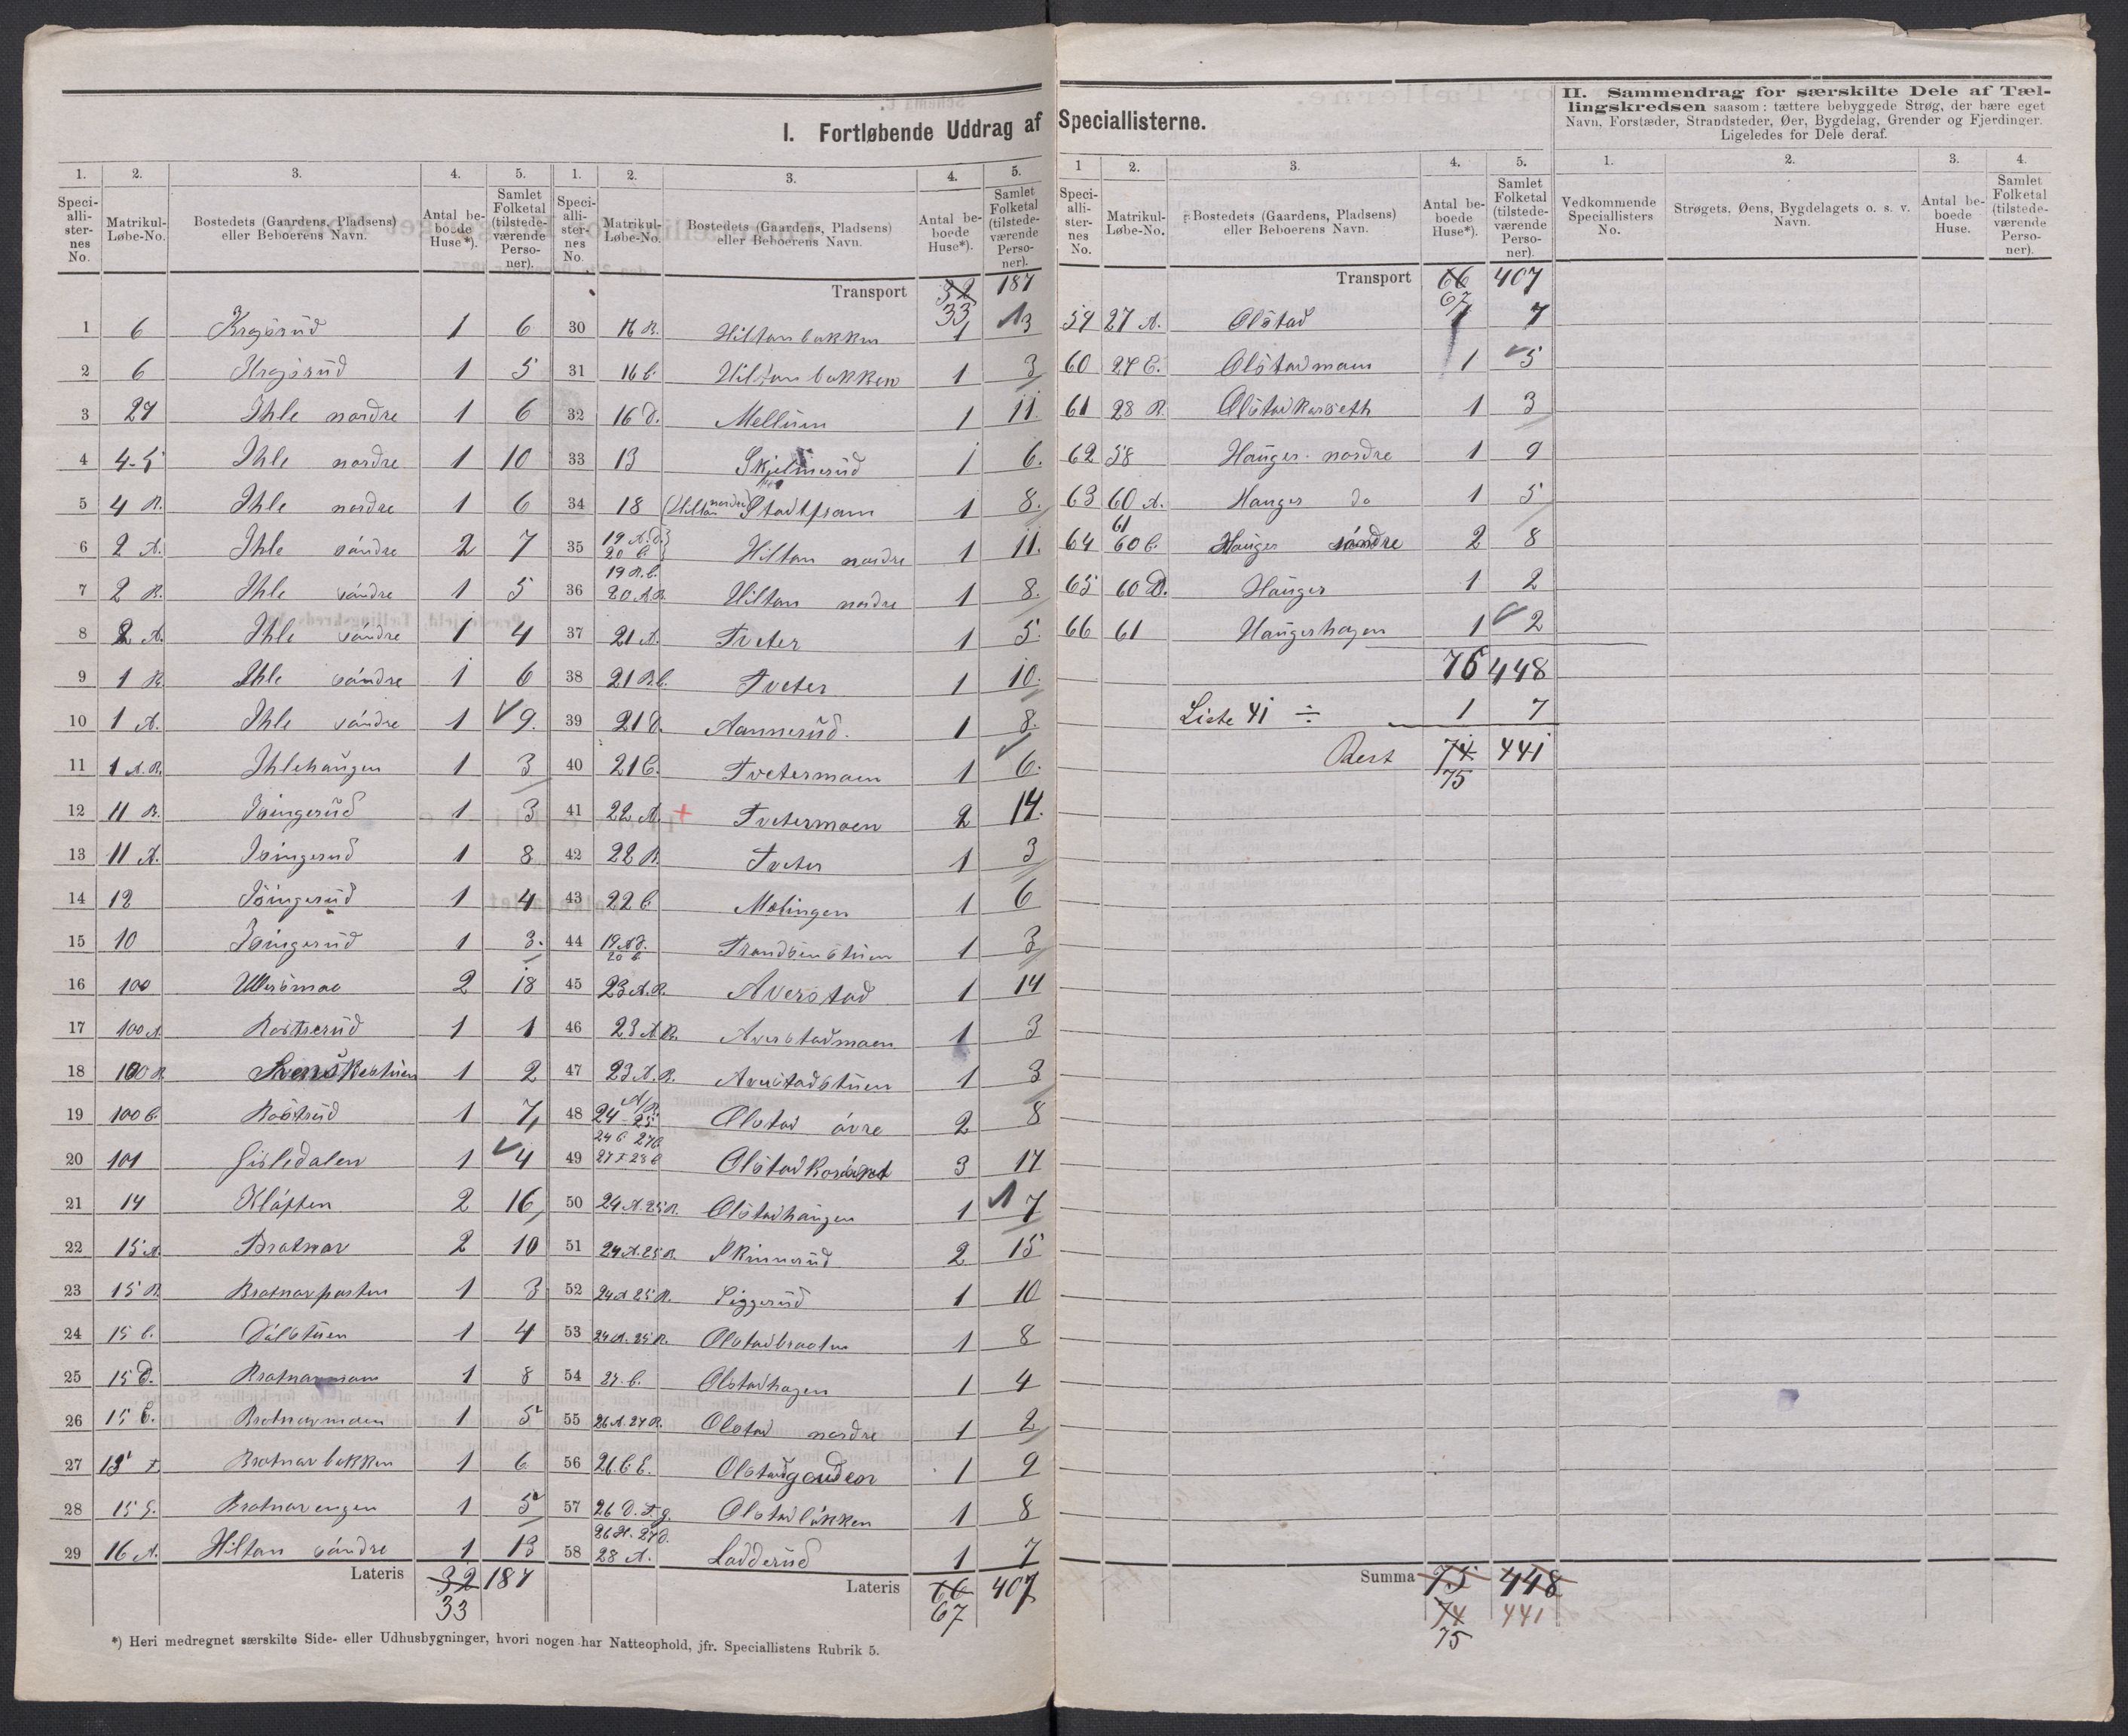 I. Fortløbende Uddrag af Speciallisterne.
II. Sammendrag for særskilte Dele af Tæl-
lingskredsen saasom: tættere bebyggede Strøg, der bære eget
Navn, Forstæder, Strandsteder, Øer, Bygdelag, Grender og Fjerdinger.
Ligeledes for Dele deraf.
1. 2. 3. 4. 5.
Speci-alli-ster-nes No. Matrikul-Løbe-No. Bostedets (Gaardens, Pladsens) eller Beboerens Navn. Antal be-boede Huse*). Samlet Folketal (tilstede-værende Perso-ner).
1 6 1 6
2 6 1 5
3 27 Ihle nordre 1 6
4 4-5 Ihle nordre 1 10
5 4 B. Ihle nordre 1 6
6 2 A. Ihle søndre 2 7
7 2 B. Ihle søndre 1 5
8 2 A. Ihle søndre 1 4
9 1 B. Ihle søndre 1 6
10 1 A. Ihle søndre 1 9.
11 1 A.B. Ihlehaugen 1 3
12 11 B. Isingerud 1 3
13 11 A. Isingerud 1 8
14 12 Isingerud 1 4
15 10 Isingerud 1 3.
16 100 Ullersmoe 2 18
17 100 A. 1 1
18 100 B. Svenskestuen 1 2
19 100 C. 1 7
20 101 Gisledalen 1 4
21 14 Kløften 2 16
22 15 A. Bratnar 2 10
23 15 B. Bratnarparten 1 3
24 15 C. Dalstuen 1 4
25 15 D. Bratnarmoen 1 8
26 15 E. Bratnarmoen 1 5
27 15 F. Bratnarbakken 1 6
28 15 G. Bratnarengen 1 5
29 16 A. Hilton søndre 1 13
Lateris 32 187
33
*) Heri medregnet særskilte Side- eller Udhusbygninger, hvori nogen har Natteophold, jfr. Speciallistens Rubrik 5.
1. 2. 3. 4. 5.
Speci-alli-ster-nes No. Matrikul-Løbe-No. Bostedets (Gaardens, Pladsens) eller Beboerens Navn. Antal be-boede Huse*). Samlet Folketal (tilstede-værende Perso-ner).
Transport 32 187
33
30 16 B. Hiltonbakken 1 3
31 16 C. Hiltonbakken 1 3
32 16 D. Mellum 1 11.
33 13 Skjelmerud 1 6.
34 18 (Hilton nordre) 1 8.
35 19 A.D. 20 C. Hilton nordre 1 11.
36 19 B.C. 20 A.B. Hilton nordre 1 8.
37 21 A. Tveter 1 5.
38 21 B.C. Tveter 1 10.
39 21 D. Aannerud. 1 8.
40 21 E. Tvetermoen 1 6.
41 22 A. + Tvetermoen 2 14.
42 22 B. Tveter 1 3
43 22 C. Molingen 1 6
44 19 A.D. 20 C. Trondsenstuen 1 3
45 23 A.B. Averstad 1 14
46 23 A.B. Averstadmoen 1 3
47 23 A.B. Averstadstuen 1 3
48 24 A/B. - 25 Olstad øvre 2 8
49 3 17
50 24 A. 25 B. Olstadhaugen 1 7
51 24 A. 25 B. Skinnerud 2 15
52 24 A 25 B. Siggerud 1 10
53 24 A. 25 B. Olstadbraaten 1 8
54 27. C. Olstadhagen 1 4
55 26 A. 27 B. Olstad nordre 1 2
56 26. C. E. 1 9
57 26 D. F. G. Olstadløkken 1 8
58 26 H. 27 D. 28 A. Ladderud 1 7
Lateris 66 407
67
1 2. 3. 4. 5.
Speci-alli-ster-nes No. Matrikul-Løbe-No. Bostedets (Gaardens, Pladsens) eller Beboerens Navn. Antal be-boede Huse*). Samlet Folketal (tilstede-værende Perso-ner).
Transport 66 407
67
59 27 A. Olstad 1 7
60 27 E. Olstadmoen 1 5
61 28 B. Olstadkorseth 1 3
62 58 Hauger nordre 1 9
63 60 A. Hauger do 1 5
64 61 60 C. Hauger søndre 2 8
65 60 D. Hauger 1 2
66 61 Haugerhagen 1 2
76 448
Liste 41 ÷ 1 7
Rest 74 441
75
Summa 75 448
74 441
75
1. 2. 3. 4.
Vedkommende Speciallisters No. Strøgets, Øens, Bygdelagets o. s. v. Navn. Antal be-boede Huse. Samlet Folketal (tilstede-værende Perso-ner).